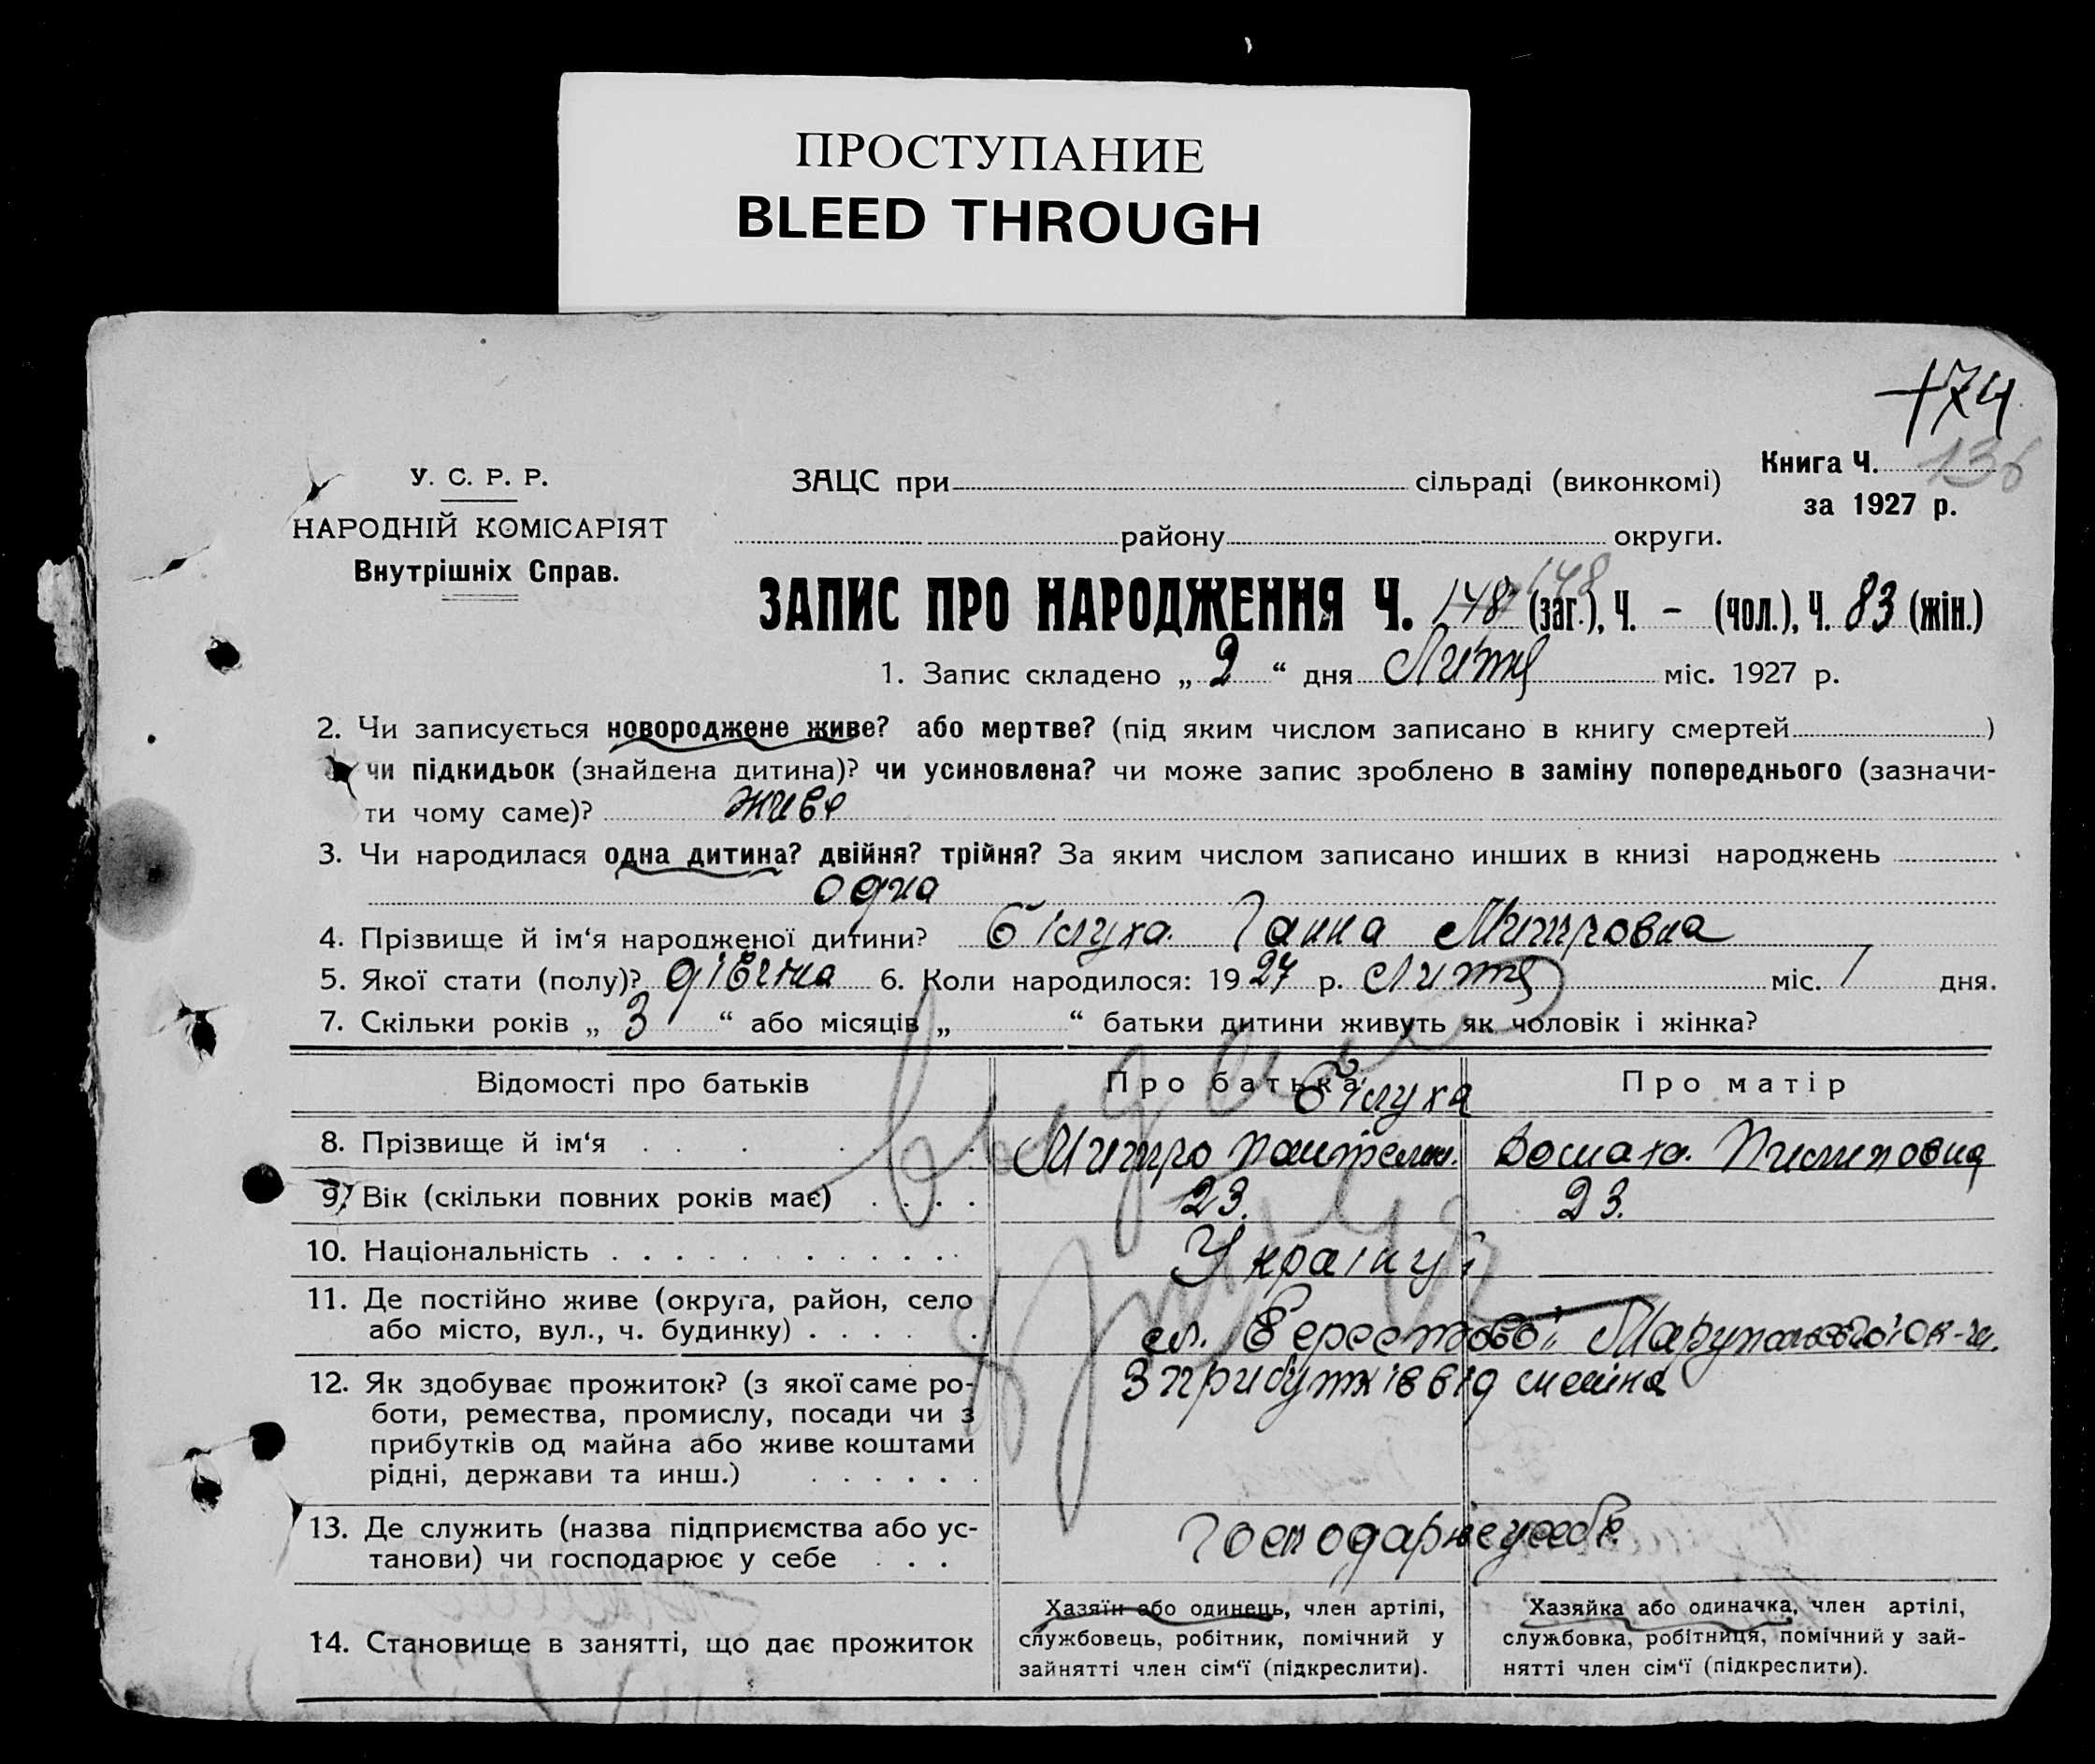 ПРОСТУПАНИЕ
BLEED THROUGH
174
У. С. Р. Р.
НАРОДНІЙ КОМІСАРІЯТ
Внутрішніх Справ.
ЗАЦС при сільраді (виконкомі)
Книга Ч. 136
за 1927 р.
району округи.
ЗАПИС ПРО НАРОДЖЕННЯ Ч. 148 148 (заг.), Ч. – (чол.), Ч. 83 (жін.)
1. Запис складено „ 2 “ дня Липня міс. 1927 р.
2. Чи записується новороджене живе? або мертве? (під яким числом записано в книгу смертей )
чи підкидьок (знайдена дитина)? чи усиновлена? чи може запис зроблено в заміну попереднього (зазначи-
ти чому саме)? живе
3. Чи народилася одна дитина? двійня? трійня? За яким числом записано инших в книзі народжень
одна
4. Прізвище й ім‘я народженої дитини? Білуха Ганна Митровна
5. Якої стати (полу)? дівчина 6. Коли народилося: 19 27 р. Липня міс. 1 дня.
7. Скільки років „ 3 “ або місяців „ “ батьки дитини живуть як чоловік і жінка?
Відомості про батьків Про батька Про матір
Білуха
8. Прізвище й ім‘я Митро Пантелим. Домаха Пилиповна
9. Вік (скільки повних років має) 23. 23.
10. Національність Українці
11. Де постійно живе (округа, район, село
або місто, вул., ч. будинку) сл. Берестової Марупольської ок-ги.
12. Як здобуває прожиток? (з якої саме ро-
боти, ремества, промислу, посади чи з
прибутків од майна або живе коштами
рідні, держави та инш.)
З прибутків від майна
13. Де служить (назва підприємства або ус-
танови) чи господарює у себе
Господарює у себе
14. Становище в занятті, що дає прожиток
Хазяїн або одинець, член артілі,
службовець, робітник, помічний у
зайнятті член сім‘ї (підкреслити).
Хазяйка або одиначка, член артілі,
службовка, робітниця, помічний у зай-
нятті член сім‘ї (підкреслити).